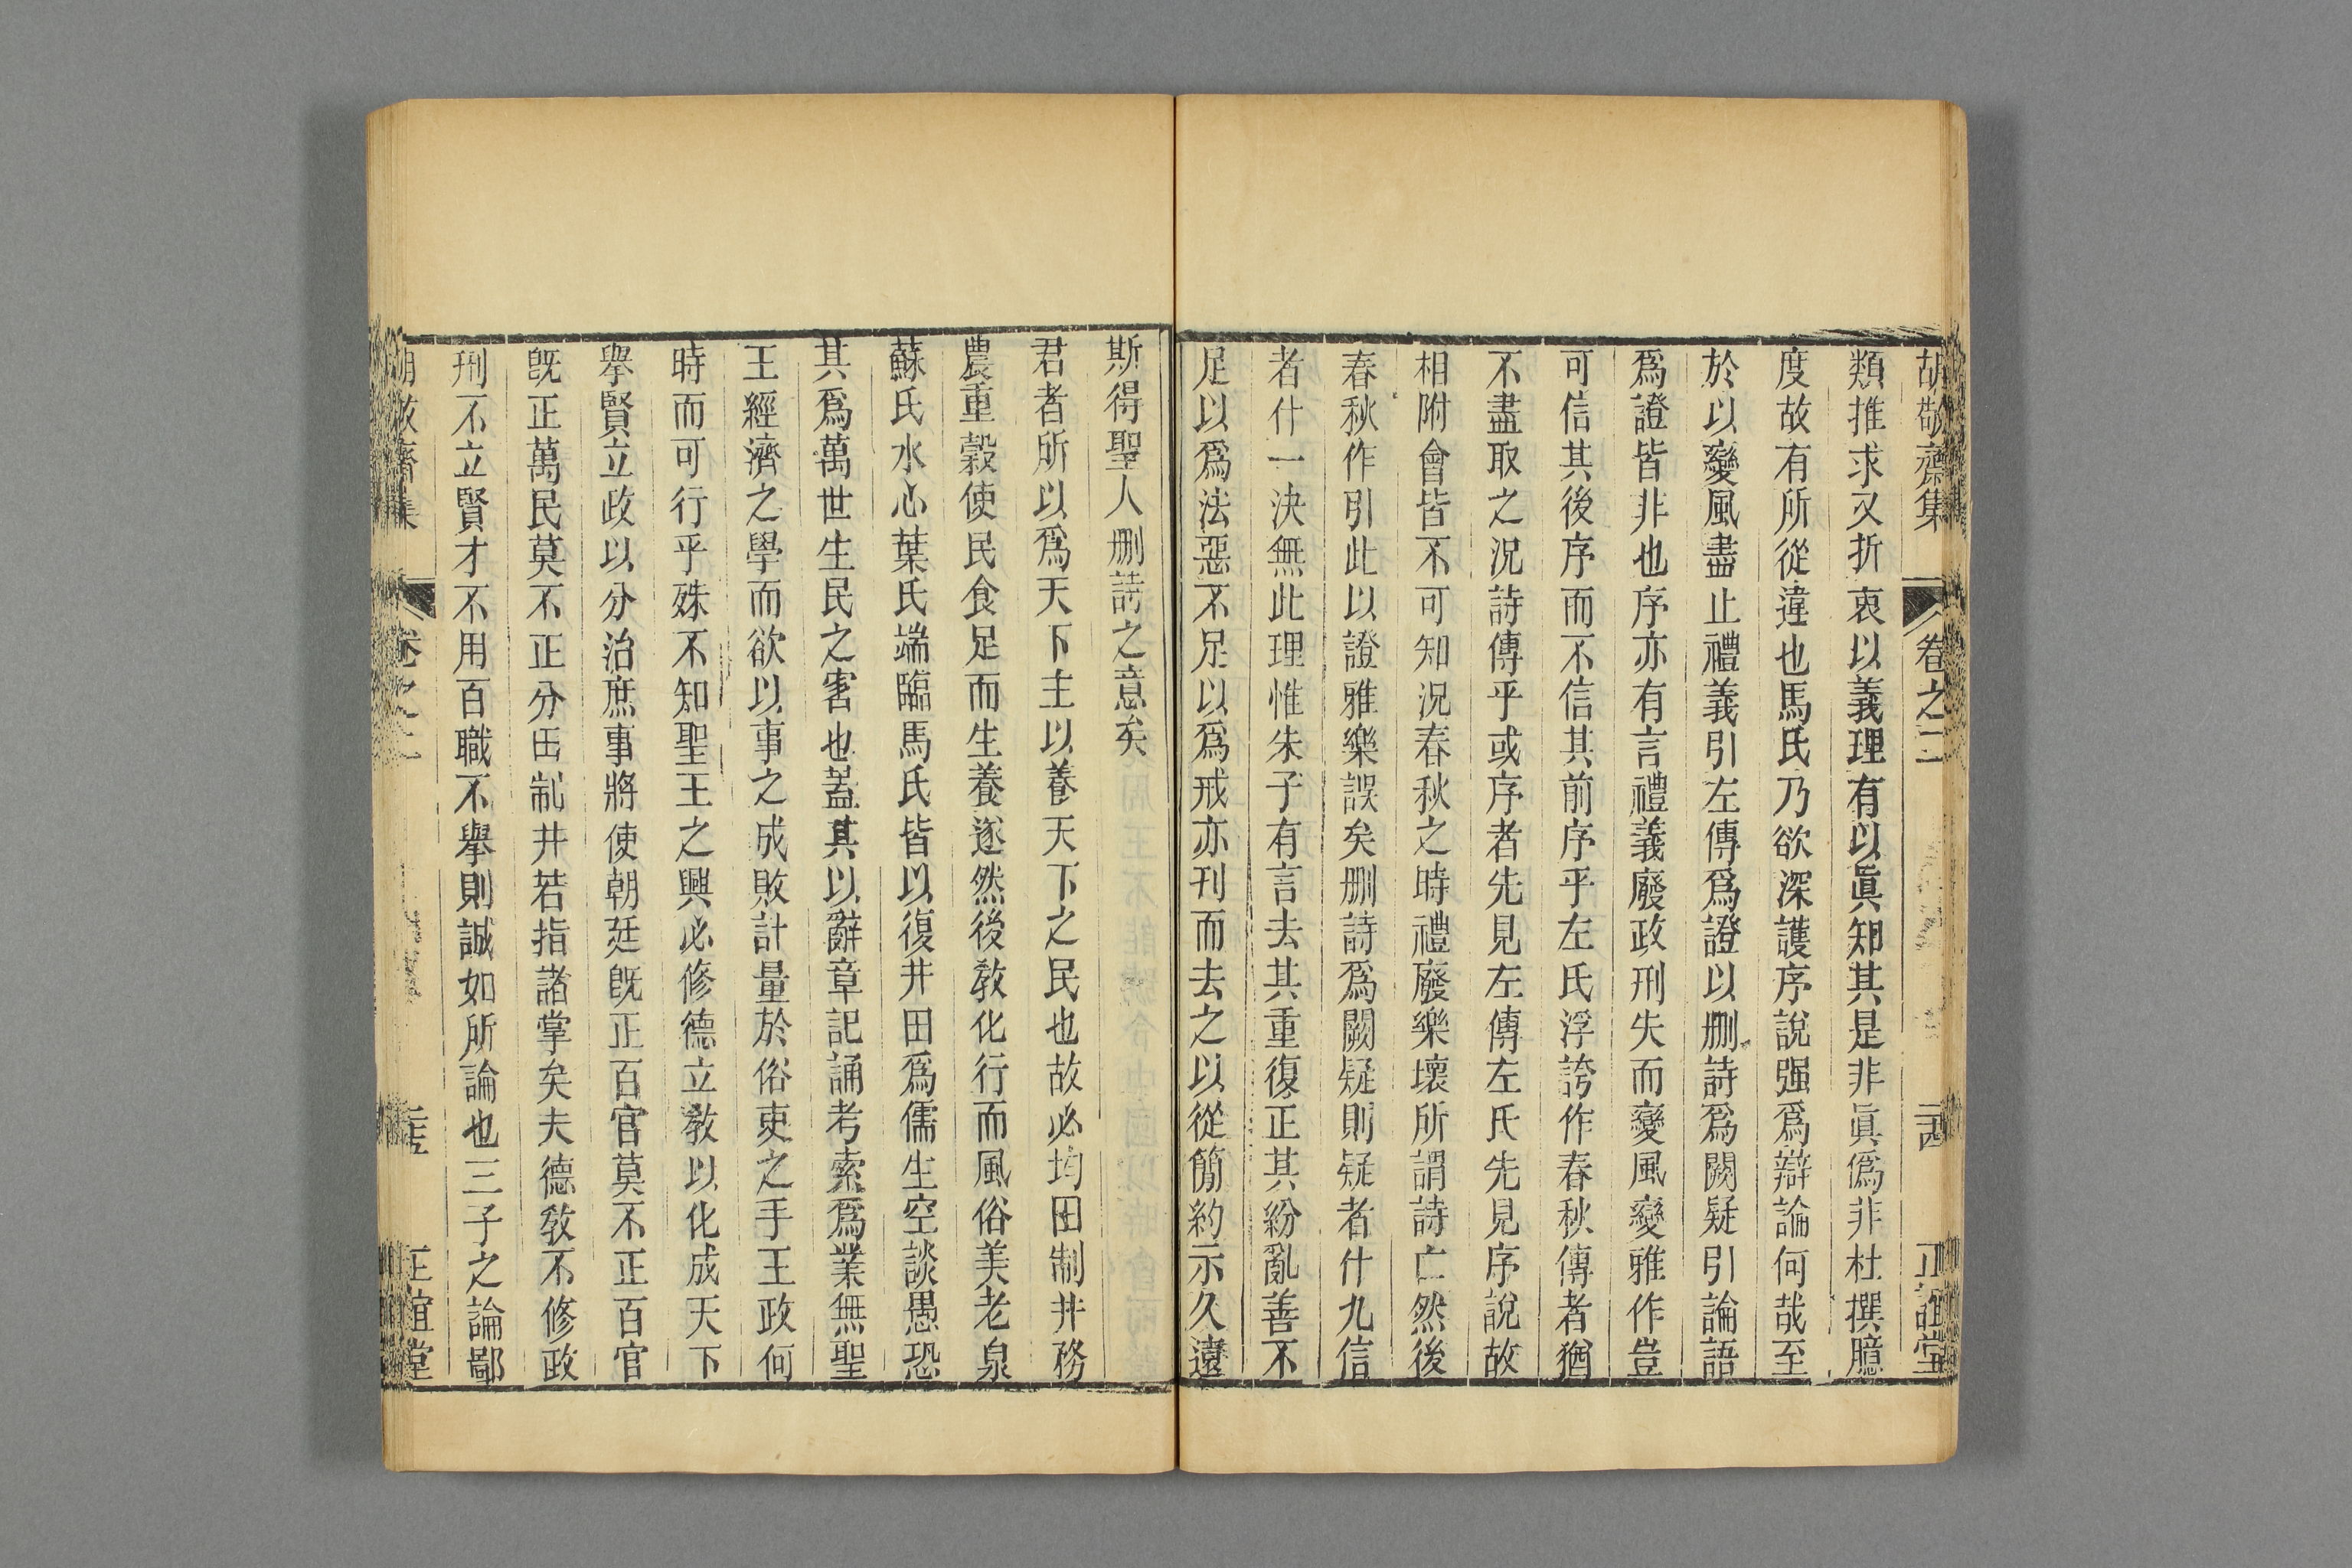 胡敬齋集 卷之二 二十四 正誼堂
類推求又折衷以義理有以眞知其是非眞僞非杜撰臆
度故有所從違也馬氏乃欲深護序說强爲辯論何哉至
於以變風盡止禮義引左傳爲證以刪詩爲闕疑引論語
爲證皆非也序亦有言禮義廢政刑失而變風變雅作豈
可信其後序而不信其前序乎左氏浮誇作春秋傳者猶
不盡取之況詩傳乎或序者先見左傳左氏先見序說故
相附會皆不可知況春秋之時禮廢樂壞所謂詩亡然後
春秋作引此以證雅樂誤矣刪詩爲闕疑則疑者什九信
者什一決無此理惟朱子有言去其重復正其紛亂善不
足以爲法惡不足以爲戒亦刊而去之以從簡約示久遠
斯得聖人刪詩之意矣
君者所以爲天下主以養天下之民也故必均田制井務
農重穀使民食足而生養遂然後敎化行而風俗美老泉
蘇氏水心葉氏端臨馬氏皆以復井田爲儒生空談愚恐
其爲萬世生民之害也蓋其以辭章記誦考索爲業無聖
王經濟之學而欲以事之成敗計量於俗吏之手王政何
時而可行乎殊不知聖王之興必修德立敎以化成天下
舉賢立政以分治庶事將使朝廷旣正百官莫不正百官
旣正萬民莫不正分田制井若指諸掌矣夫德敎不修政
刑不立賢才不用百職不舉則誠如所論也三子之論鄙
胡敬齋集 卷之二 二十五 正誼堂